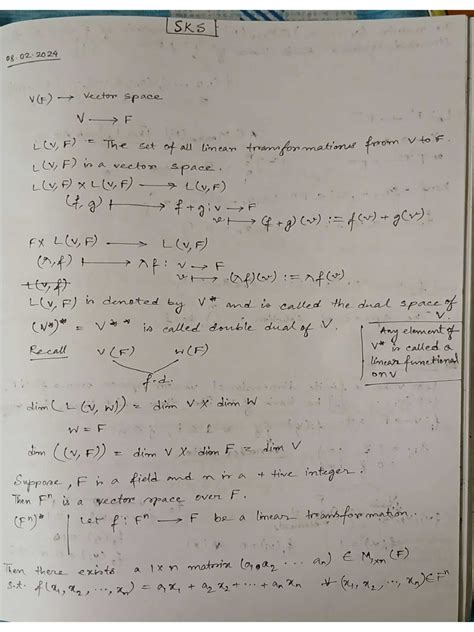 SKS
08.02.2024
V(F) → Vector space
V ⟶ F
L(V,F) = The set of all linear transformations from V to F.
L(V,F) is a vector space.
L(V,F) × L(V,F) ⟶ L(V,F)
(f,g) ⟼ f+g : V → F
v ⟼ (f+g)(v) := f(v) + g(v)
F × L(V,F) ⟶ L(V,F)
(λ,f) ⟼ λf : V → F
v ⟼ (λf)(v) := λf(v).
L(V,F)
L(V,F) is denoted by V* and is called the dual space of V
(V*)* = V** is called double dual of V.
Any element of
V* is called a
linear functional
on V
Recall V(F) W(F)
f.d.
dim(L(V,W)) = dim V × dim W
W = F
dim((V,F)) = dim V × dim F = dim V
Suppose, F is a field and n is a +tive integer.
Then Fⁿ is a vector space over F.
(Fⁿ)* | Let f : Fⁿ ⟶ F be a linear transformation.
Then there exists a 1×n matrix (a₁ a₂ ... aₙ) ∈ M₁ₓₙ(F)
s.t. f(x₁, x₂, ..., xₙ) = a₁x₁ + a₂x₂ + ... + aₙxₙ ∀ (x₁, x₂, ..., xₙ) ∈ Fⁿ